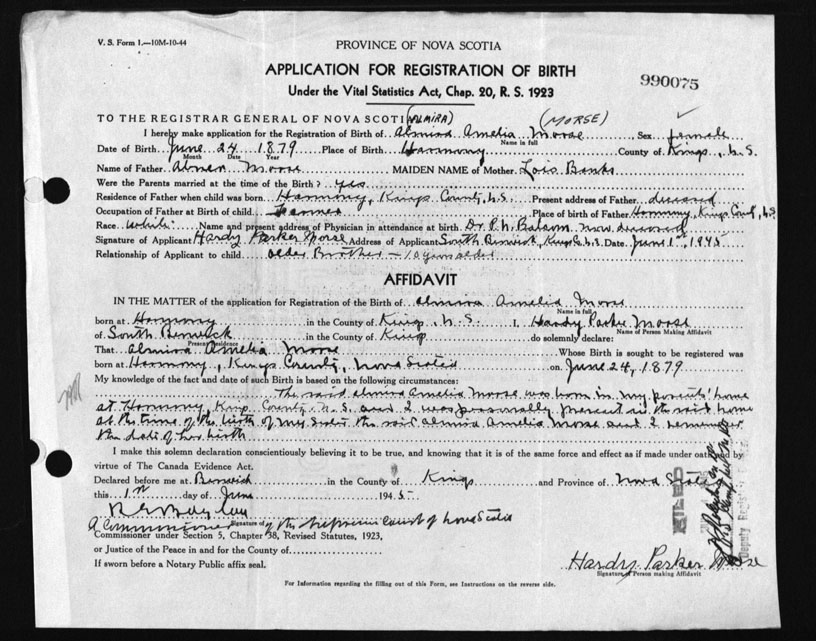 V. S. Form 1.—10M-10-44
PROVINCE OF NOVA SCOTIA
APPLICATION FOR REGISTRATION OF BIRTH
990075
Under the Vital Statistics Act, Chap. 20, R. S. 1923
TO THE REGISTRAR GENERAL OF NOVA SCOTIA (ALMIRA) (MORSE)
I hereby make application for the Registration of Birth of Almira Amelia Morse Sex female
Name in full
Date of Birth June 24 1879 Place of Birth Harmony County of Kings, N.S.
Month Date Year
Name of Father Abner Morse MAIDEN NAME of Mother Lois Banks
Were the Parents married at the time of the Birth? yes
Residence of Father when child was born Harmony, Kings County, N.S. Present address of Father deceased
Occupation of Father at Birth of child Farmer Place of birth of Father Harmony, Kings County, N.S.
Race white Name and present address of Physician in attendance at birth Dr. P. N. Balcom now deceased
Signature of Applicant Hardy Parker Morse Address of Applicant South Berwick, Kings Co. N.S. Date June 1st, 1945
Relationship of Applicant to child older Brother – 10 years older
AFFIDAVIT
IN THE MATTER of the application for Registration of the Birth of Almira Amelia Morse
Name in full
born at Harmony in the County of Kings N.S. I, Hardy Parker Morse
Name of Person Making Affidavit
of South Berwick in the County of Kings do solemnly declare:
Present Residence
That Almira Amelia Morse Whose Birth is sought to be registered was
born at Harmony, Kings County, Nova Scotia on June 24, 1879
My knowledge of the fact and date of such Birth is based on the following circumstances:
The said Almira Amelia Morse was born in my parents' home
at Harmony Kings County, N.S. and I was personally present in the said home
at the time of the birth of my sister the said Almira Amelia Morse and I remember
the date of her birth
I make this solemn declaration conscientiously believing it to be true, and knowing that it is of the same force and effect as if made under oath and by
virtue of The Canada Evidence Act.
Declared before me at Berwick in the County of Kings and Province of Nova Scotia
this 1st day of June 1945
A Commissioner of the Supreme Court of Nova Scotia
Signature of
Commissioner under Section 5, Chapter 38, Revised Statutes, 1923,
or Justice of the Peace in and for the County of
If sworn before a Notary Public affix seal.
Hardy Parker Morse
Signature of Person making Affidavit
For Information regarding the filling out of this Form, see Instructions on the reverse side.
FILED
Deputy Registrar